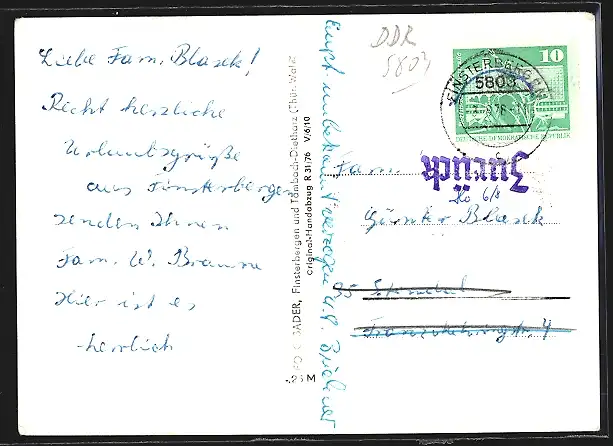 Liebe Fam. Blasek!
Recht herzliche
Urlaubsgrüße
aus Finsterbergen
senden Ihnen
Fam. W. Braune
Hier ist es
herrlich
BADER, Finsterbergen und Tambach-Dietharz (Thür. Wald)
Original-Handabzug R 31/76 V/6/10
M
Empf. unbekannt verzogen
DDR
5803
FINSTERBERGEN
5803
10
DEUTSCHE DEMOKRATISCHE REPUBLIK
Zurück
Fam.
6/8
Günter Blasek
Stendal